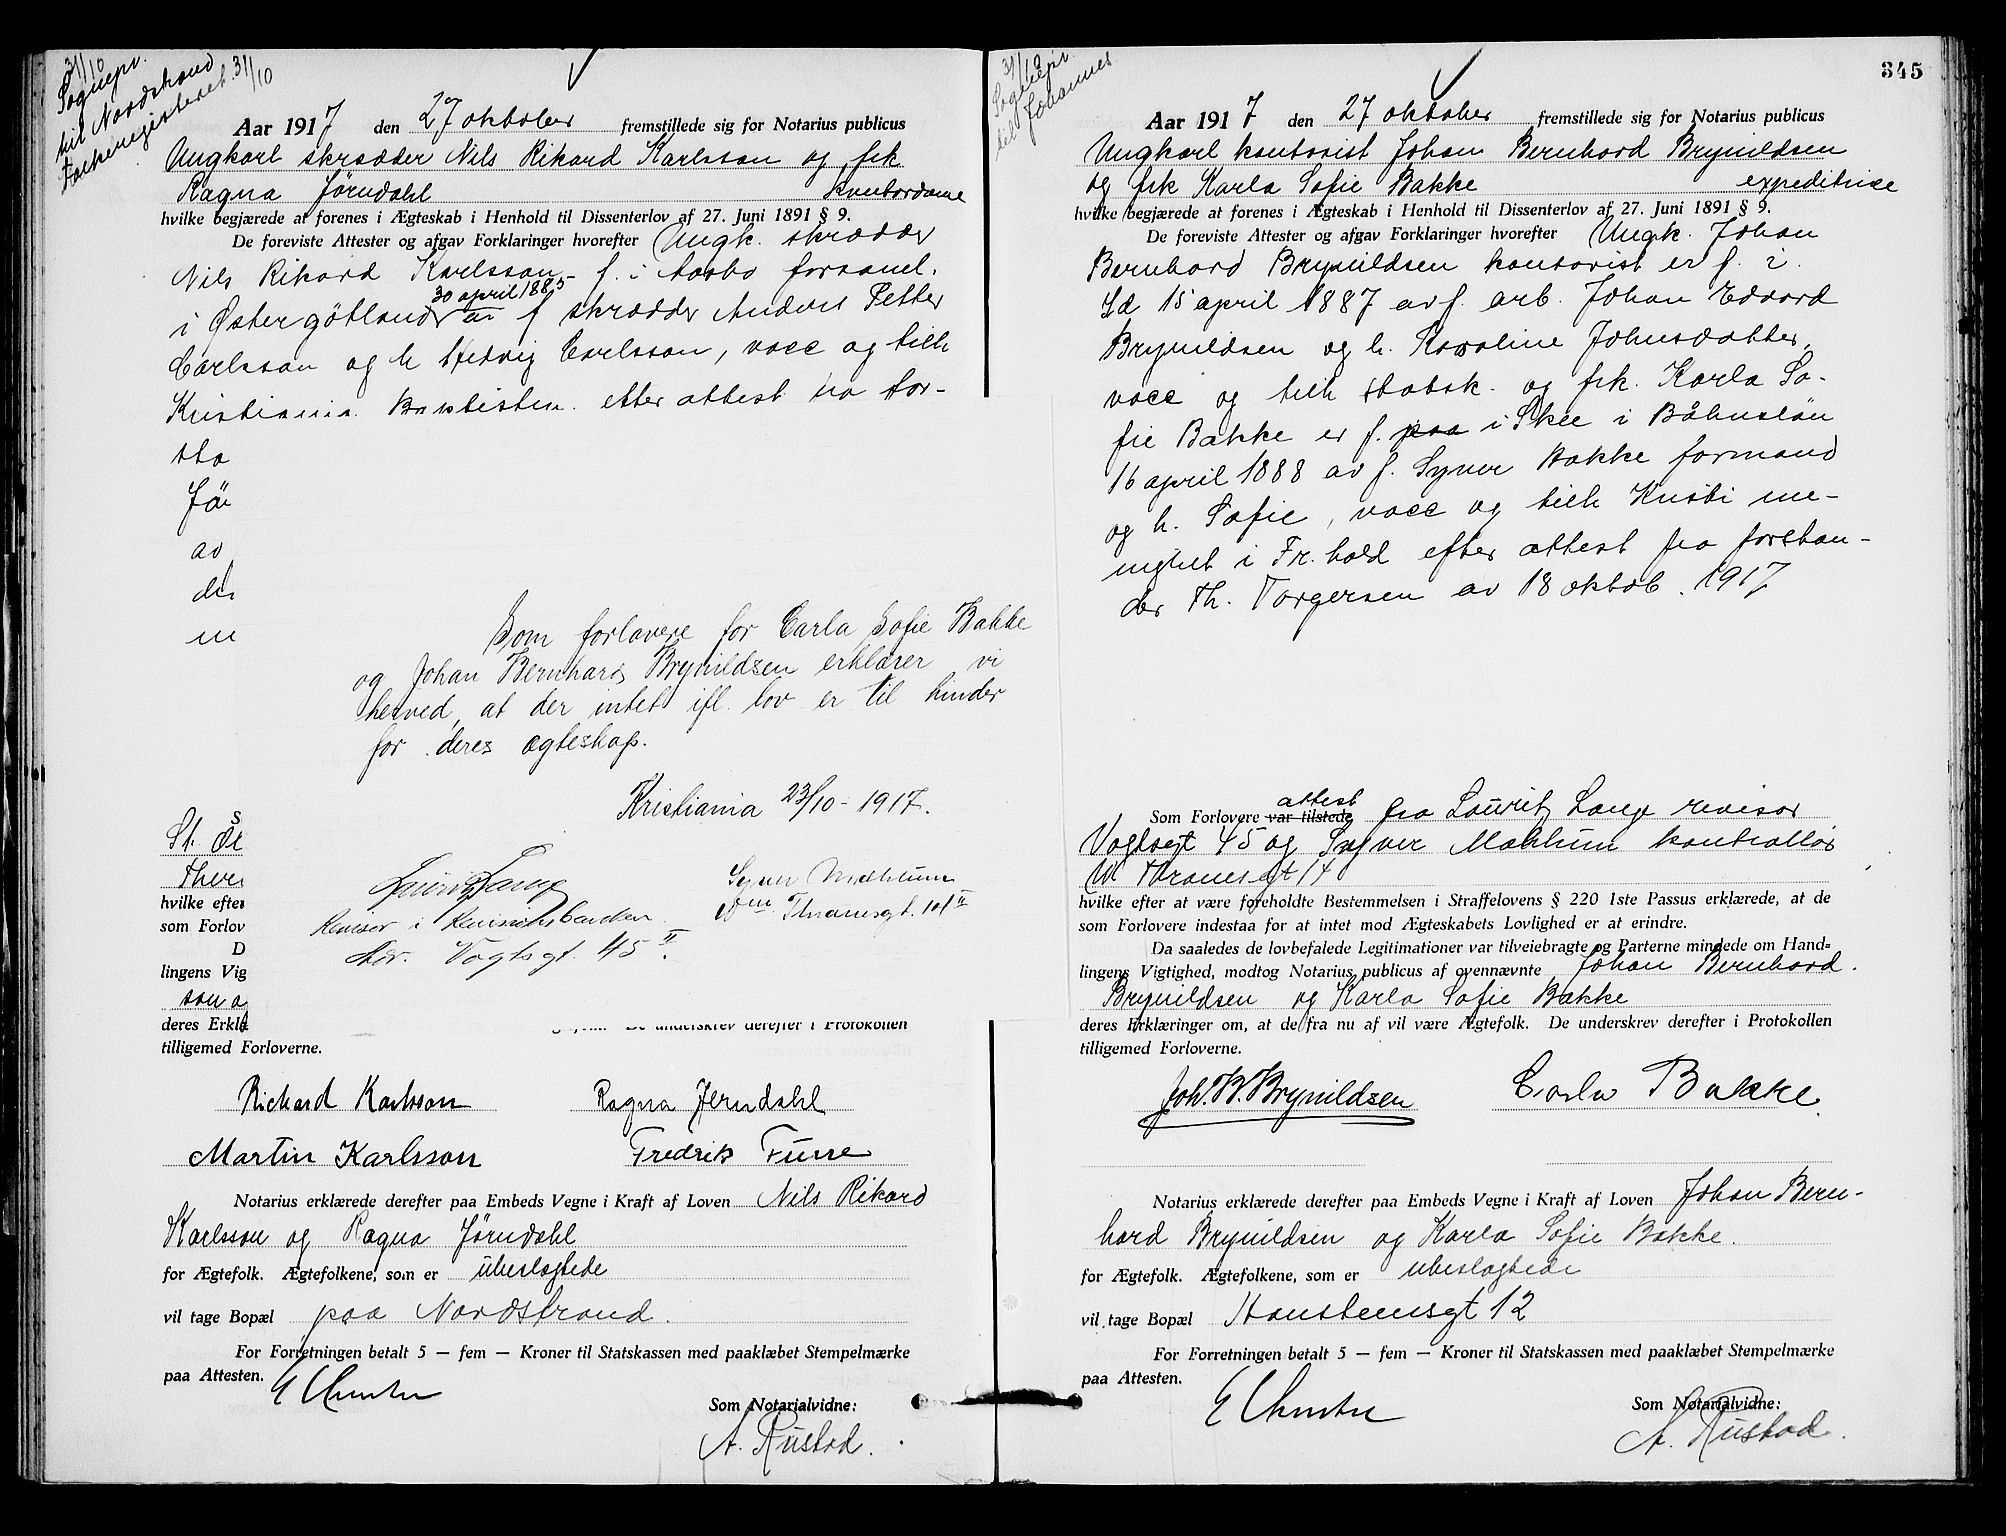 31/10
Sognepr.
til Nordstrand
Folkeregisteret 31/10
Aar 1917 den 27 oktober fremstillede sig for Notarius publicus
Ungkarl skrædder Nils Rikard Karlsson og frk
Ragna Jörndahl kontordame
hvilke begjærede at forenes i Ægteskab i Henhold til Dissenterlov af 27. Juni 1891 § 9.
De foreviste Attester og afgav Forklaringer hvorefter Ungk. skrædder
Nils Rikard Karlsson f. i Aasbo forsaml.
30 april 1885
i Østergötland av f skrædder Anders Petter
Carlsson og h Hedvig Carlsson, vacc og tilh
Kristiania Baptistm. efter attest fra for-
sta
Jör
av
der
m
Som forlovere for Carla Sofie Bakke
og Johan Bernhard Brynildsen erklærer vi
herved, at der intet ifl. lov er til hinder
for deres ægteskap.
Kristiania 23/10 - 1917.
S
St. Ør
Thver
hvilke efter
som Forlov
D
lingens Vig
son o
deres Erklæ
Lauritz Lange
Revisor i Kreditbanken
Adr. Vogtsgt. 45 II.
Syver Mathum
Wm Thranesgt. 14 II
De underskrev derefter i Protokollen
tilligemed Forloverne.
Richard Karlsson Ragna Jerndahl
Martin Karlsson Fredrik Furre
Notarius erklærede derefter paa Embeds Vegne i Kraft af Loven Nils Rikard
Karlsson og Ragna Jörndahl
for Ægtefolk. Ægtefolkene, som er ubeslegtede
vil tage Bopæl paa Nordstrand.
For Forretningen betalt 5 — fem — Kroner til Statskassen med paaklæbet Stempelmærke
paa Attesten.
Som Notarialvidne:
A. Rustad.
345
31/10
Sognepr
til Johannes
Aar 1917 den 27 oktober fremstillede sig for Notarius publicus
Ungkarl kontorist Johan Bernhard Brynildsen
og frk Karla Sofie Bakke expeditrise
hvilke begjærede at forenes i Ægteskab i Henhold til Dissenterlov af 27. Juni 1891 § 9.
De foreviste Attester og afgav Forklaringer hvorefter Ungk. Johan
Bernhard Brynildsen kontorist er f. i
Id 15 april 1887 av f. arb. Johan Edvard
Brynildsen og h. Karoline Johnsdatter,
vacc og tilh statsk. og frk. Karla So-
fie Bakke er f. paa i Skee i Båhuslän
16 april 1888 av f. Syver Bakke formand
og h. Sofie, vacc og tilh Kristi me-
nighet i Fr.hald efter attest fra forstan-
der Th. Torgersen av 18 oktob. 1917
Som Forlovere var tilstede attest fra Lauritz Lange revisor
Vogtsgt 45 og Syver Mathum kontrollør
W Thranesgt 14
hvilke efter at være foreholdte Bestemmelsen i Straffelovens § 220 1ste Passus erklærede, at de
som Forlovere indestaa for at intet mod Ægteskabets Lovlighed er at erindre.
Da saaledes de lovbefalede Legitimationer var tilveiebragte og Parterne mindede om Hand-
lingens Vigtighed, modtog Notarius publicus af ovennævnte Johan Bernhard
Brynildsen og Karla Sofie Bakke
deres Erklæringer om, at de fra nu af vil være Ægtefolk. De underskrev derefter i Protokollen
tilligemed Forloverne.
Joh. B. Brynildsen Carla Bakke.
Notarius erklærede derefter paa Embeds Vegne i Kraft af Loven Johan Bern-
hard Brynildsen og Karla Sofie Bakke.
for Ægtefolk. Ægtefolkene, som er ubeslegtede
vil tage Bopæl Hansteensgt 12
For Forretningen betalt 5 — fem — Kroner til Statskassen med paaklæbet Stempelmærke
paa Attesten.
Som Notarialvidne:
A. Rustad.